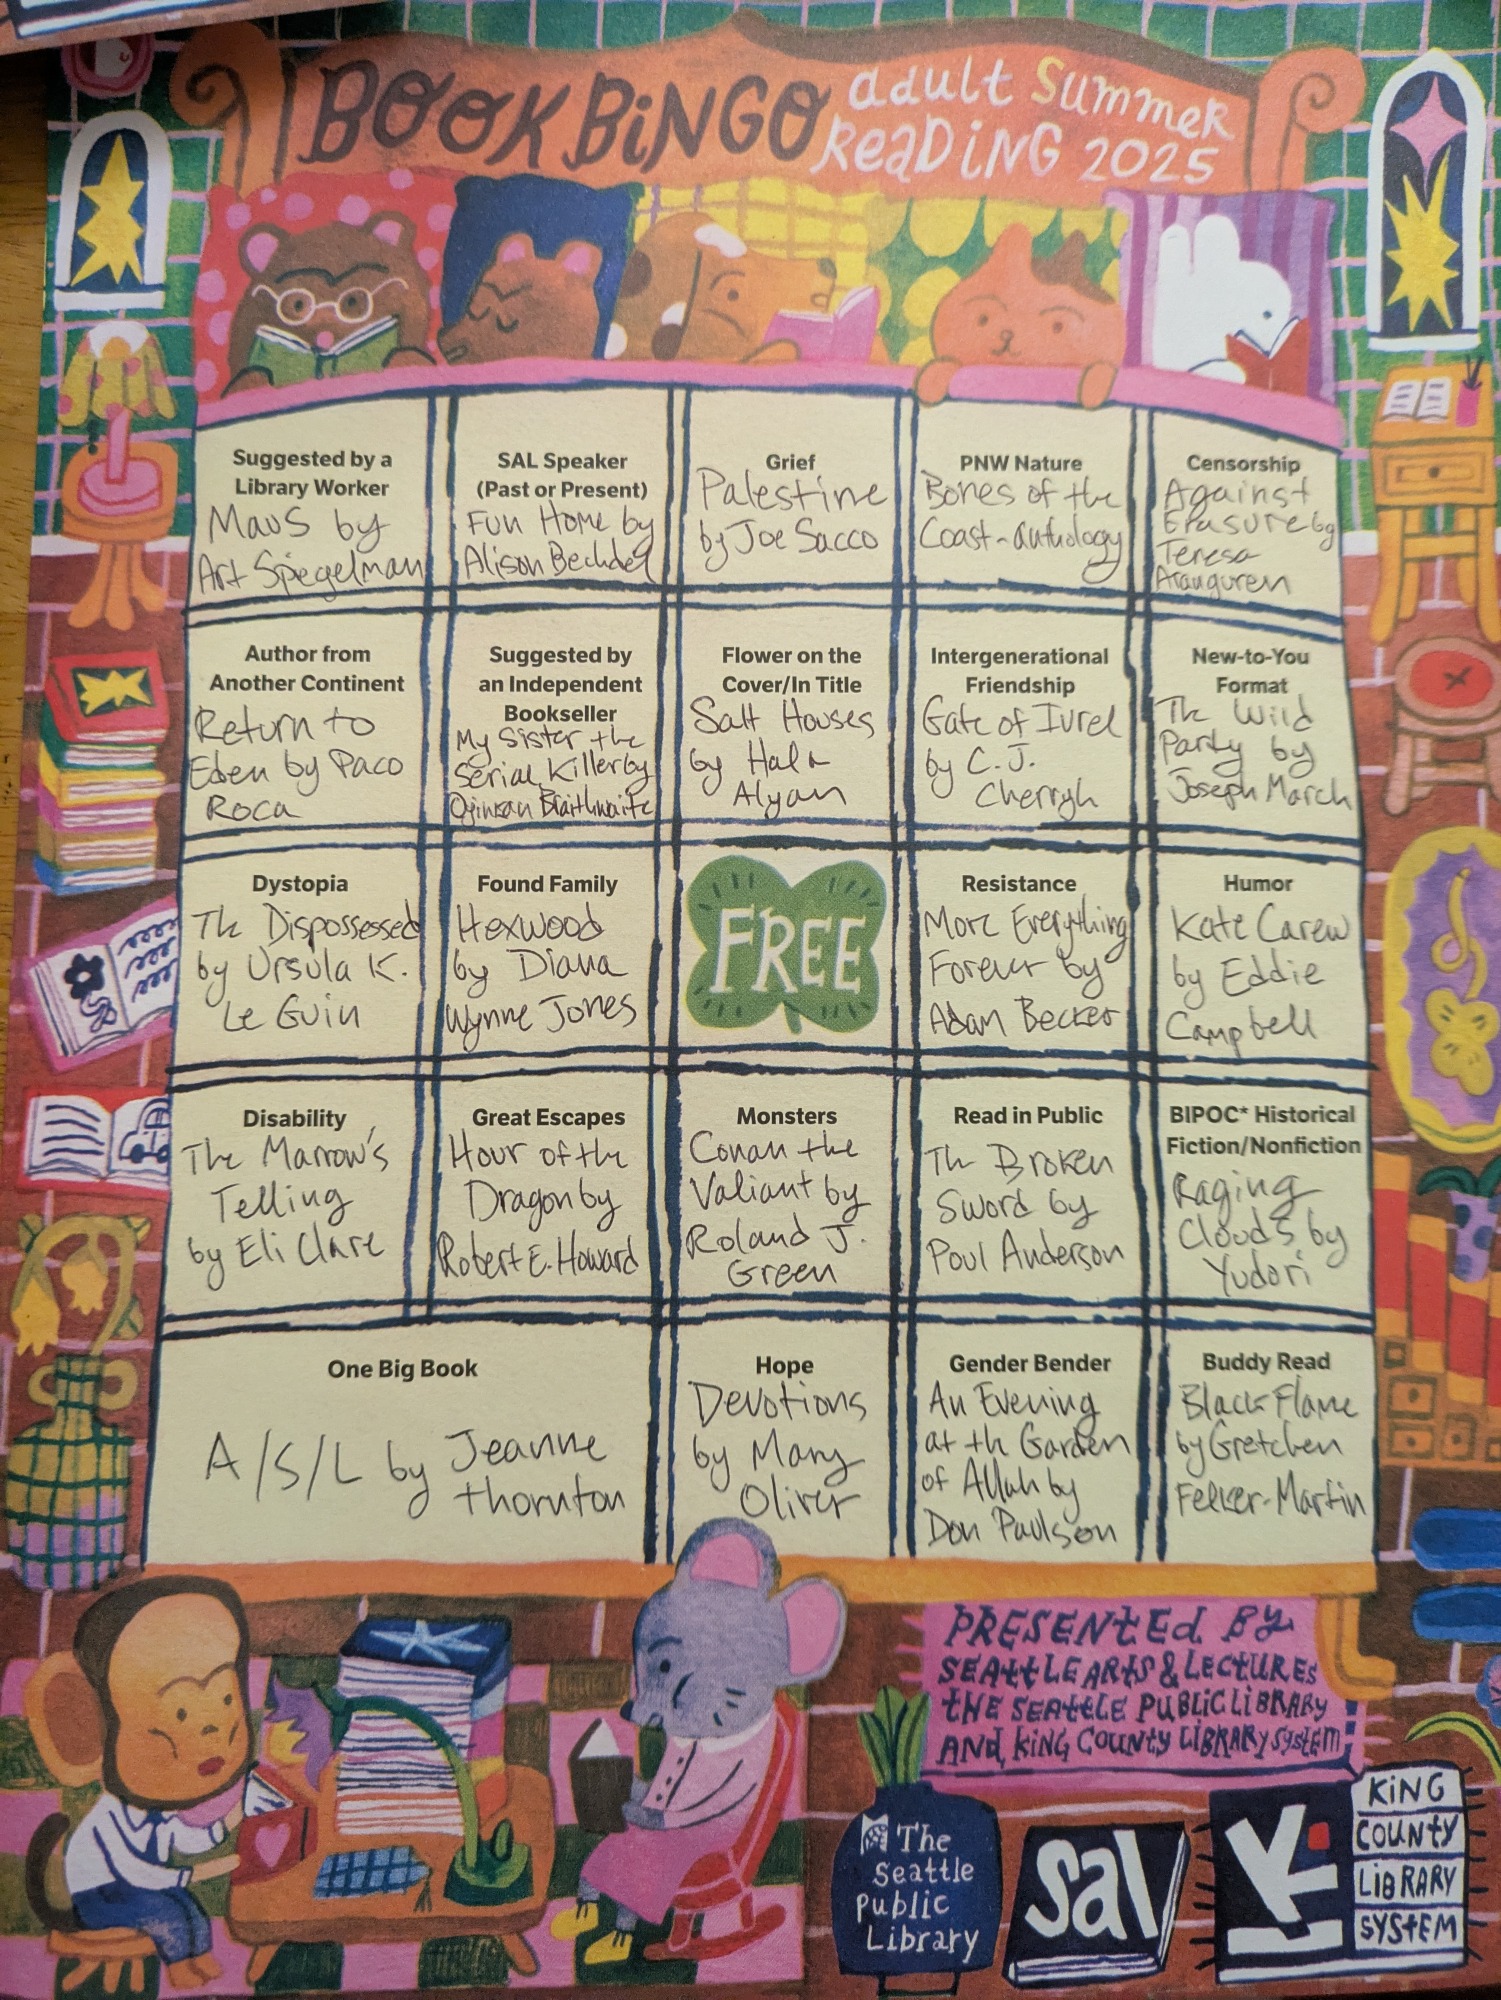 BOOK BiNGO adult Summer
ReaDiNG 2025
Suggested by a
Library Worker
Maus by
Art Spiegelman
SAL Speaker
(Past or Present)
Fun Home by
Alison Bechdel
Grief
Palestine
by Joe Sacco
PNW Nature
Bones of the
Coast - anthology
Censorship
Against
Erasure by
Teresa
Aranguren
Author from
Another Continent
Return to
Eden by Paco
Roca
Suggested by
an Independent
Bookseller
My Sister the
Serial Killer by
Oyinkan Braithwaite
Flower on the
Cover/In Title
Salt Houses
by Hala
Alyan
Intergenerational
Friendship
Gate of Ivrel
by C.J.
Cherryh
New-to-You
Format
The Wild
Party by
Joseph March
Dystopia
The Dispossessed
by Ursula K.
Le Guin
Found Family
Hexwood
by Diana
Wynne Jones
FREE
Resistance
More Everything
Forever by
Adam Becker
Humor
Kate Carew
by Eddie
Campbell
Disability
The Marrow's
Telling
by Eli Clare
Great Escapes
Hour of the
Dragon by
Robert E. Howard
Monsters
Conan the
Valiant by
Roland J.
Green
Read in Public
The Broken
Sword by
Poul Anderson
BIPOC* Historical
Fiction/Nonfiction
Raging
Clouds by
Yudori
One Big Book
A/S/L by Jeanne
Thornton
Hope
Devotions
by Mary
Oliver
Gender Bender
An Evening
at the Garden
of Allah by
Don Paulson
Buddy Read
Black Flame
by Gretchen
Felker-Martin
PRESENTED BY
SEATTLE ARTS & LECTURES
THE SEATTLE PUBLIC LIBRARY
AND KING COUNTY LIBRARY SYSTEM
The
Seattle
Public
Library
sal
KING
COUNTY
LIBRARY
SYSTEM